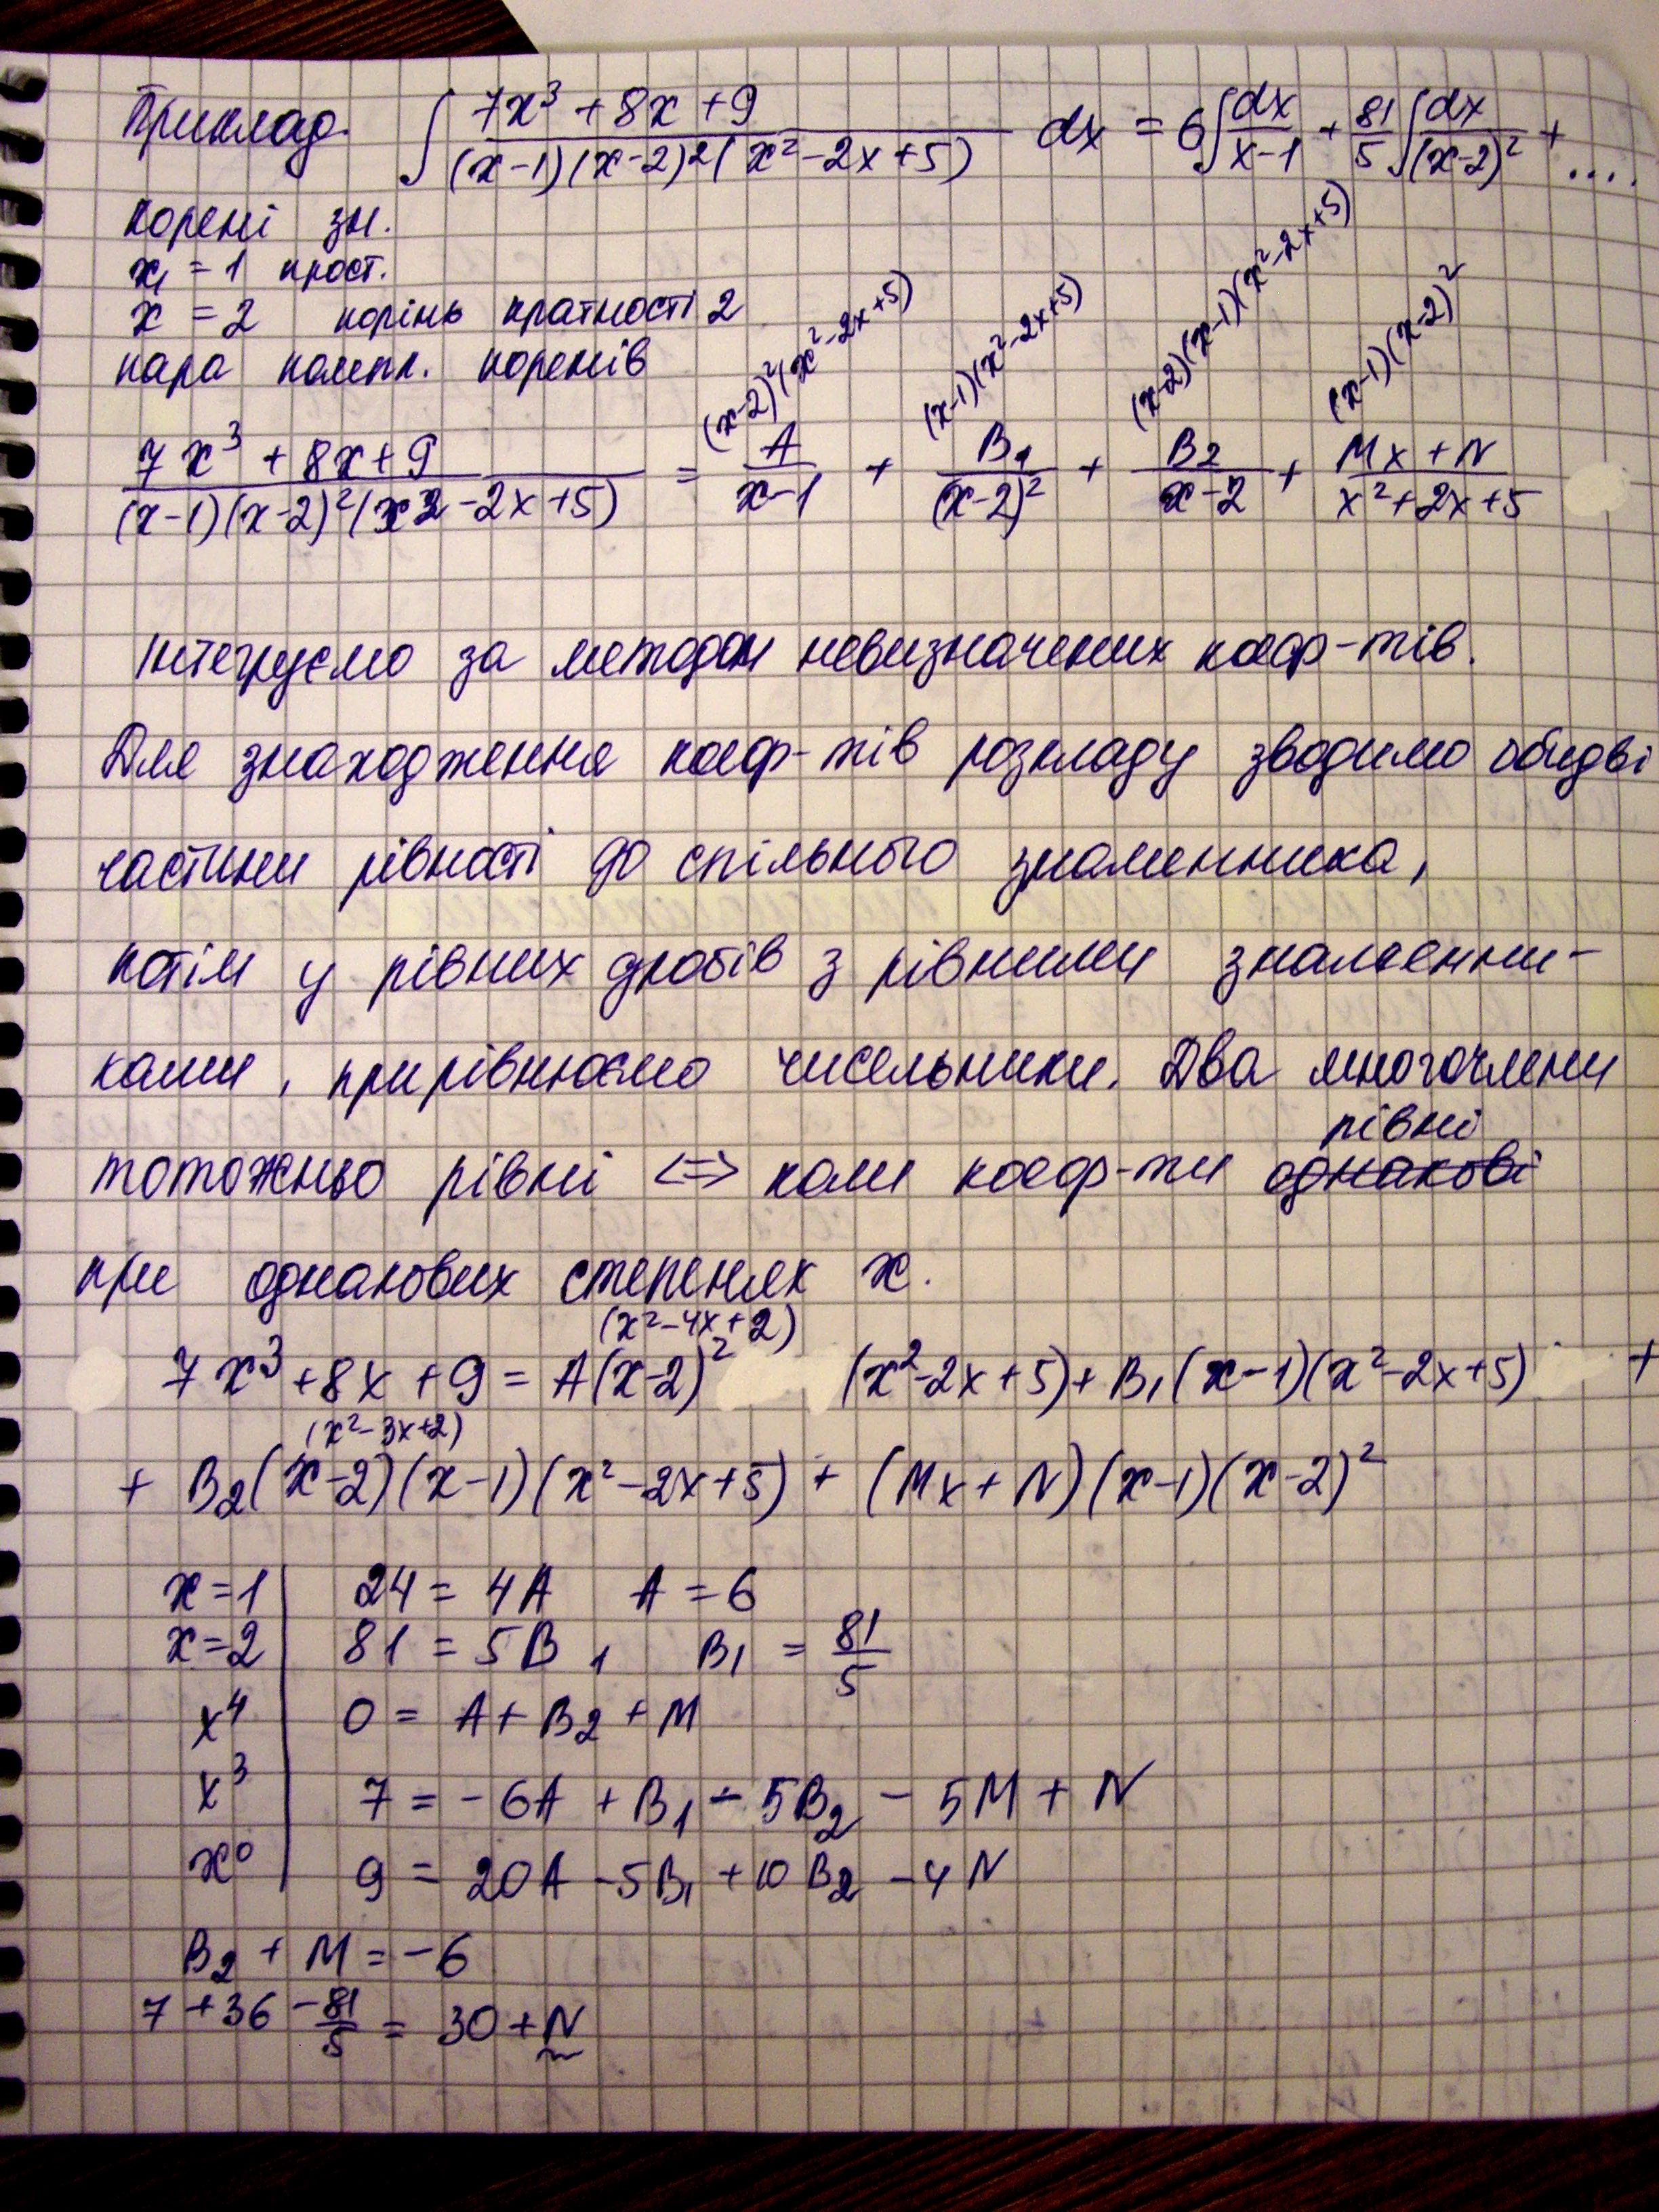 Приклад. ∫ (7x³ + 8x + 9)/((x-1)(x-2)²(x²-2x+5)) dx = 6∫ dx/(x-1) + 81/5 ∫ dx/(x-2)² + ....
корені зн.
x₁ = 1 прост.
x = 2 корінь кратності 2
пара компл. коренів
(x-2)²(x²-2x+5) (x-1)(x²-2x+5) (x-2)(x-1)(x²-2x+5) (x-1)(x-2)²
(7x³ + 8x + 9)/((x-1)(x-2)²(x2-2x+5)) = A/(x-1) + B₁/(x-2)² + B₂/(x-2) + (Mx+N)/(x²+2x+5)
Інтегруємо за методом невизначених коеф-тів.
Для знаходження коеф-тів розкладу зводимо обидві
частини рівності до спільного знаменника,
потім у рівних дробів з рівними знаменни-
ками, прирівнюємо чисельники. Два многочлени
рівні
тотожньо рівні <=> коли коеф-ти однакові
при однакових степенях x.
(x²-4x+2)
7x³ + 8x + 9 = A(x-2)² (x²-2x+5) + B₁(x-1)(x²-2x+5) +
(x²-3x+2)
+ B₂(x-2)(x-1)(x²-2x+5) + (Mx+N)(x-1)(x-2)²
x=1 | 24 = 4A A = 6
x=2 | 81 = 5B₁ B₁ = 81/5
x⁴ | 0 = A + B₂ + M
x³ | 7 = -6A + B₁ - 5B₂ - 5M + N
x⁰ | 9 = 20A - 5B₁ + 10B₂ - 4N
B₂ + M = -6
7 + 36 - 81/5 = 30 + N